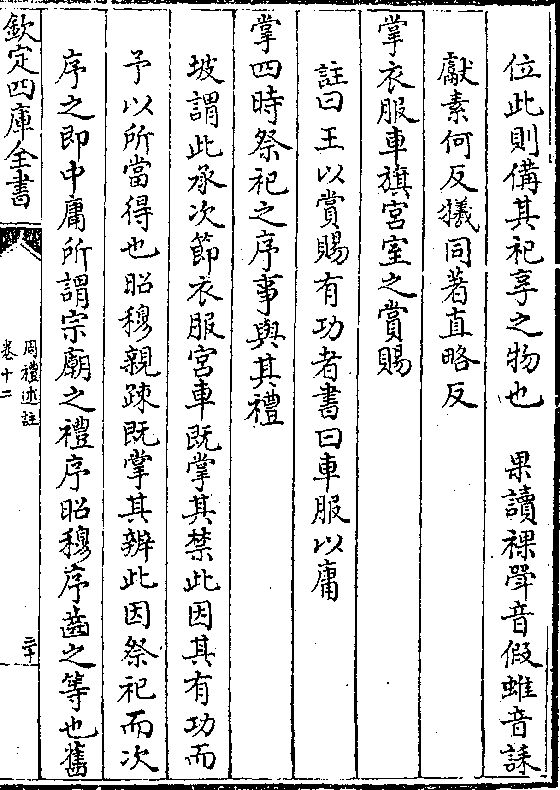 位此則備其祀享之物也　果讀祼斝音假蜼音誄
獻素何反犧同著直略反
掌衣服車旗宮室之賞賜
註曰王以賞賜有功者書曰車服以庸
掌四時祭祀之序事與其禮
坡謂此承次節衣服宮車既掌其禁此因其有功而
予以所當得也昭穆親疎既掌其辨此因祭祀而次
序之即中庸所謂宗廟之禮序昭穆序齒之等也舊
欽定四庫全書
周禮述註
卷十二
三十